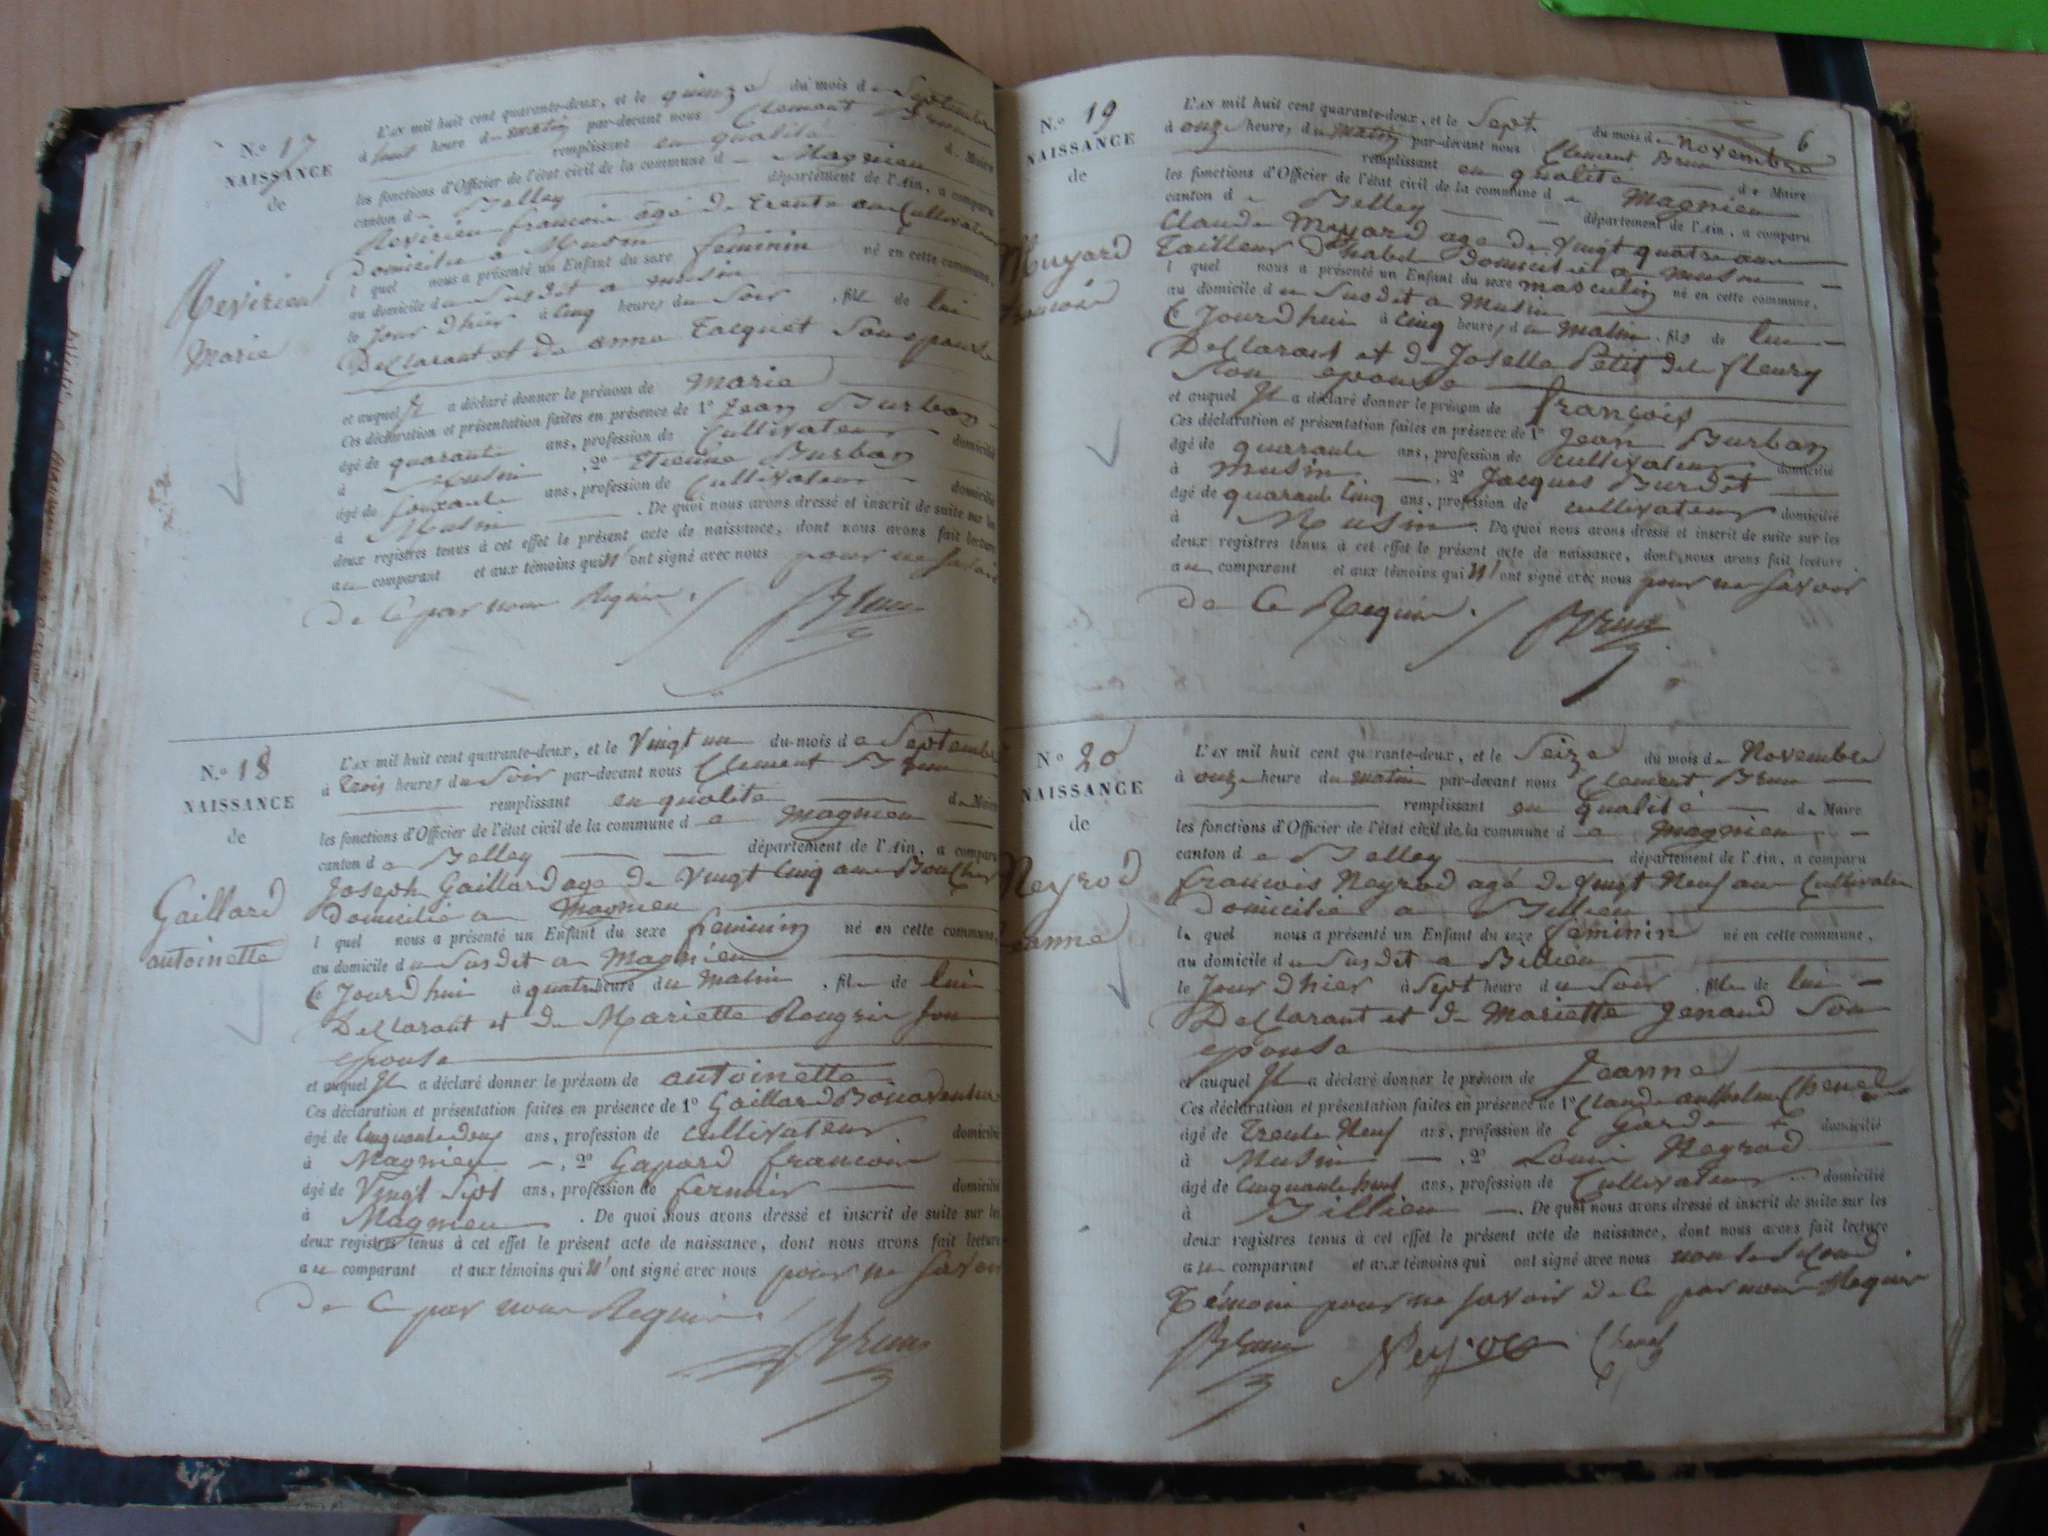 N.º 17
NAISSANCE
de
Revirieu
Marie
L'AN mil huit cent quarante-deux, et le quinze du mois de Septembre
à huit heure du matin par-devant nous Clement Brun
remplissant en qualité de Maire
les fonctions d'Officier de l'état civil de la commune de Magnieu
canton de Belley département de l'Ain, a comparu
Revirieu francois âgé de trente ans Cultivateur
Domicilié a Musin
l quel nous a présenté un Enfant du sexe feminin né en cette commune,
au domicile du Susdit a musin
le Jour d hier à Cinq heures du Soir , fille de lui
Declarant et de anne Tacquet Son epouse
et auquel Il a déclaré donner le prénom de Marie
Ces déclaration et présentation faites en présence de 1º Jean Burban
âgé de quarante ans, profession de Cultivateur domicilié
à Musin , 2º Etienne Burban
âgé de Soixante ans, profession de Cultivateur domicilié
à Musin . De quoi nous avons dressé et inscrit de suite sur les
deux registres tenus à cet effet le présent acte de naissance, dont nous avons fait lecture
au comparant et aux témoins qui n' ont signé avec nous pour ne savoir
de Ce par nous Requis. /
Brun
N.º 18
NAISSANCE
de
Gaillard
antoinette
L'AN mil huit cent quarante-deux, et le Vingt un du mois de Septembre
à Trois heures du Soir par-devant nous Clement Brun
remplissant en qualité de Maire
les fonctions d'Officier de l'état civil de la commune d e magnieu
canton d e Belley département de l'Ain, a comparu
Joseph Gaillard age de Vingt Cinq ans
Domicilié a Magnieu
l quel nous a présenté un Enfant du sexe feminin né en cette commune,
au domicile du Susdit a Magnieu
Ce Jourdhui à quatre heure du Matin , fille de lui
Declarant et de Mariette Rougrin Son
epouse
et auquel Il a déclaré donner le prénom de antoinette
Ces déclaration et présentation faites en présence de 1º Gaillard Bonaventure
âgé de Cinquante deux ans, profession de Cultivateur domicilié
à Magnieu , 2º Gapard francois
âgé de Vingt Sept ans, profession de fermier domicilié
à Magnieu . De quoi nous avons dressé et inscrit de suite sur les
deux registres tenus à cet effet le présent acte de naissance, dont nous avons fait lecture
au comparant et aux témoins qui n' ont signé avec nous pour ne savoir
de Ce par nous Requis. /
Brun
N.º 19
NAISSANCE
de
Muyard
francois
6
L'AN mil huit cent quarante-deux, et le Sept du mois de Novembre
à onze heure, du Matin par-devant nous Clement Brun
remplissant en qualité de Maire
les fonctions d'Officier de l'état civil de la commune d e Magnieu
canton d e Belley département de l'Ain, a comparu
Claude Muyard age de Vingt quatre ans
Tailleur D'habit Domicilié a Musin
l quel nous a présenté un Enfant du sexe masculin né en cette commune,
au domicile du Susdit a Musin
Ce Jourdhui à Cinq heures du Matin , fils de lui
Declarant et de Josette Petit dela fleury
Son epouse
et auquel Il a déclaré donner le prénom de François
Ces déclaration et présentation faites en présence de 1º Jean Burban
âgé de quarante ans, profession de cultivateur domicilié
à Musin , 2º Jacques Burdet
âgé de quarante Cinq ans, profession de cultivateur domicilié
à Musin . De quoi nous avons dressé et inscrit de suite sur les
deux registres tenus à cet effet le présent acte de naissance, dont nous avons fait lecture
au comparant et aux témoins qui n' ont signé avec nous pour ne savoir
de Ce Requis. /
Brun
Nº 20
NAISSANCE
de
Neyrod
Jeanne
L'AN mil huit cent quarante-deux, et le Seize du mois de Novembre
à onze heure du matin par-devant nous Clement Brun
remplissant en qualité de Maire
les fonctions d'Officier de l'état civil de la commune d e magnieu
canton d e Belley département de l'Ain, a comparu
francois Neyrod agé de Vingt Neuf ans Cultivateur
Domicilié a Bilieu
le quel nous a présenté un Enfant du sexe féminin né en cette commune,
au domicile du Susdit a Bilieu
le Jour d hier à Sept heure du Soir , fille de lui
Declarant et de Mariette Genaud Son
epouse
et auquel Il a déclaré donner le prénom de Jeanne
Ces déclaration et présentation faites en présence de 1º Claude anthelme Chenel
âgé de Trente Neuf ans, profession de Garde domicilié
à Musin , 2º Louis Neyrod
âgé de Cinquante huit ans, profession de Cultivateur domicilié
à Billieu . De quoi nous avons dressé et inscrit de suite sur les
deux registres tenus à cet effet le présent acte de naissance, dont nous avons fait lecture
au comparant et aux témoins qui ont signé avec nous non le second
Témoin pour ne savoir de Ce par nous Requis
Brun Neyrod Chenel